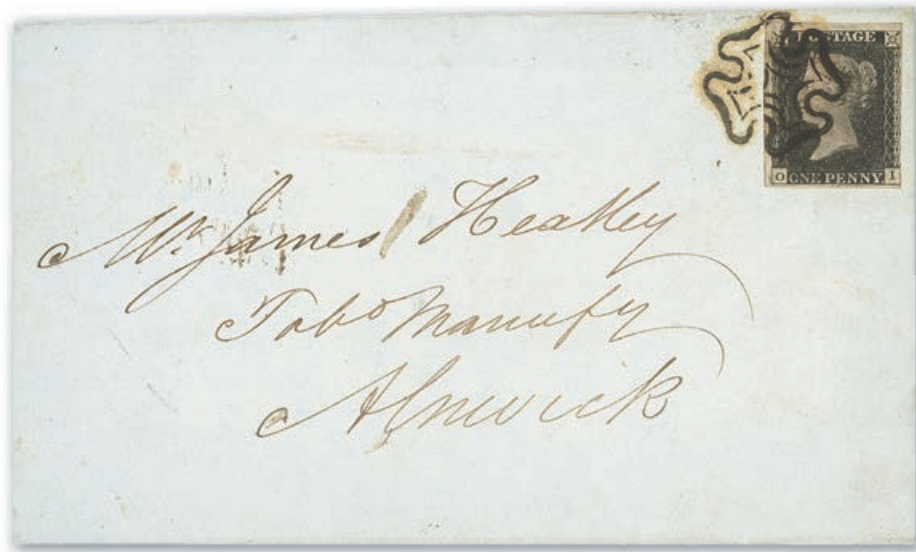 POSTAGE
O ONE PENNY I
Mr James Heatley
Tabo Manufy
Alnwick